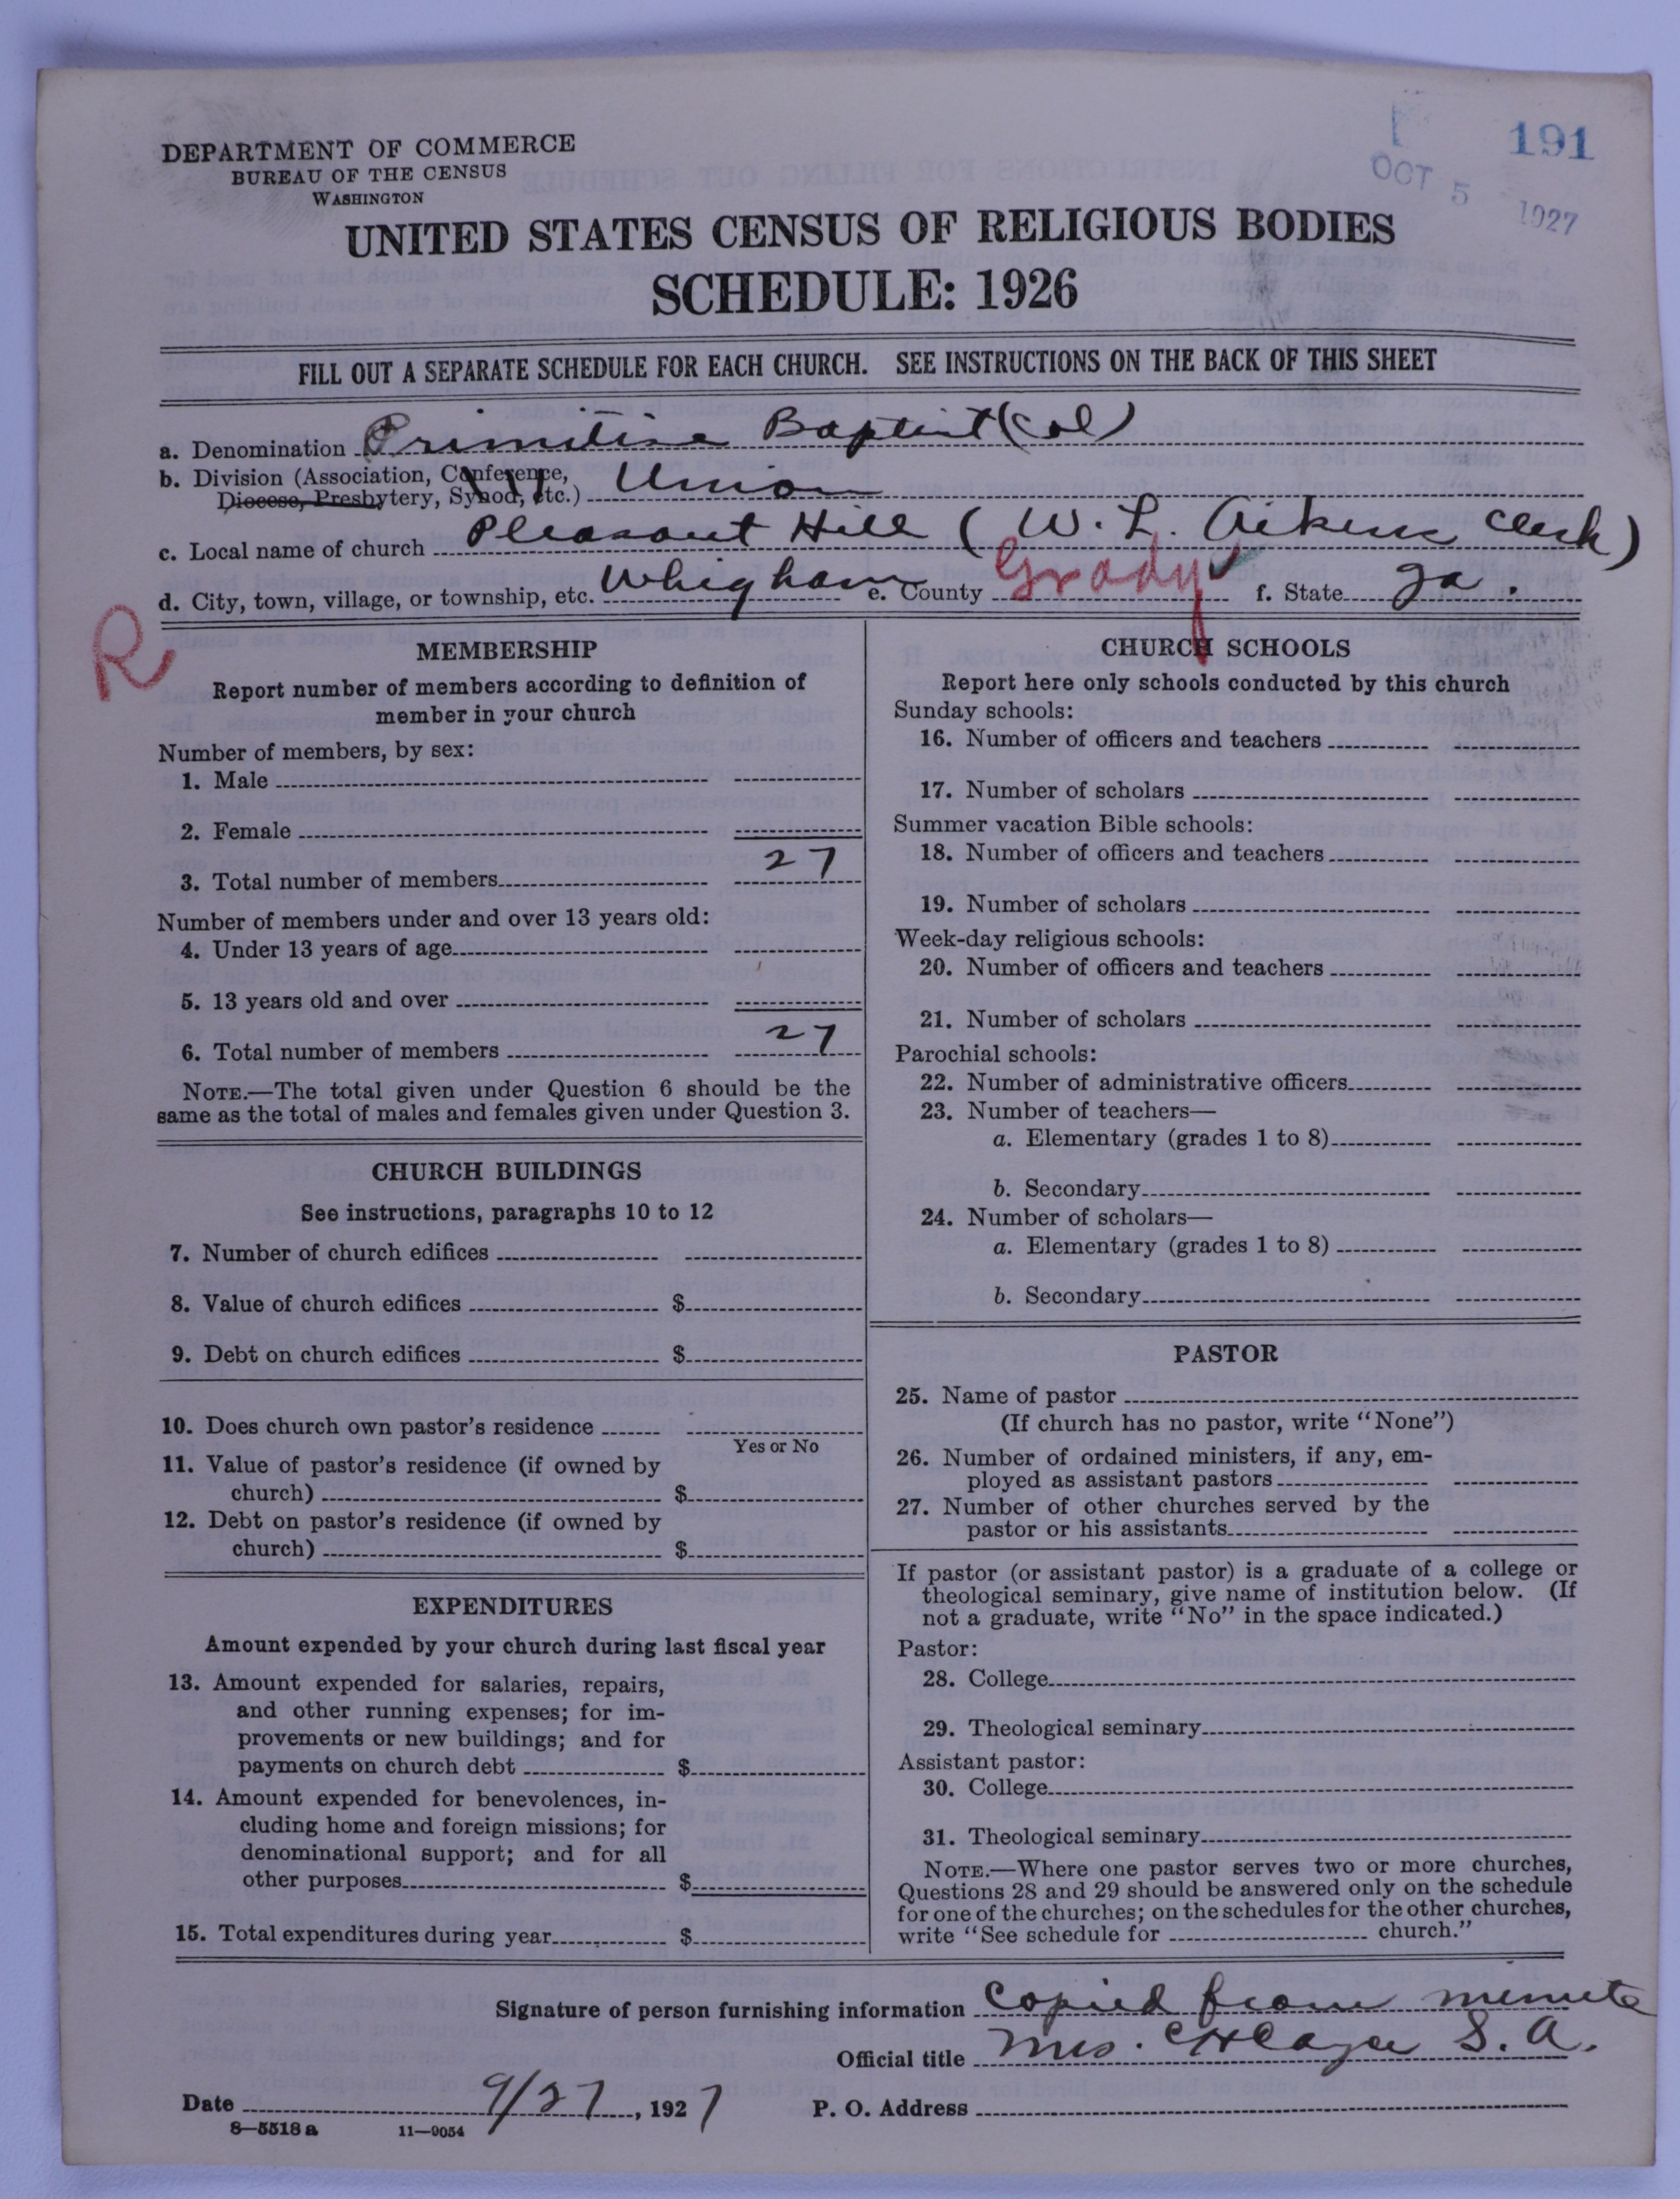 191
OCT 5 1927
DEPARTMENT OF COMMERCE
BUREAU OF THE CENSUS
WASHINGTON
UNITED STATES CENSUS OF RELIGIOUS BODIES
SCHEDULE: 1926
FILL OUT A SEPARATE SCHEDULE FOR EACH CHURCH. SEE INSTRUCTIONS ON THE BACK OF THIS SHEET
a. Denomination Primitive Baptist (Col)
b. Division (Association, Conference,
Diocese, Presbytery, Synod, etc.) Union
c. Local name of church Pleasant Hill (W. L. Aikens Clerk)
d. City, town, village, or township, etc. Whigham e. County Grady f. State Ga.
R
MEMBERSHIP
Report number of members according to definition of
member in your church
Number of members, by sex:
1. Male
2. Female
3. Total number of members 27
Number of members under and over 13 years old:
4. Under 13 years of age
5. 13 years old and over
6. Total number of members 27
NOTE.—The total given under Question 6 should be the
same as the total of males and females given under Question 3.
CHURCH BUILDINGS
See instructions, paragraphs 10 to 12
7. Number of church edifices
8. Value of church edifices $
9. Debt on church edifices $
10. Does church own pastor's residence
Yes or No
11. Value of pastor's residence (if owned by
church) $
12. Debt on pastor's residence (if owned by
church) $
EXPENDITURES
Amount expended by your church during last fiscal year
13. Amount expended for salaries, repairs,
and other running expenses; for im-
provements or new buildings; and for
payments on church debt $
14. Amount expended for benevolences, in-
cluding home and foreign missions; for
denominational support; and for all
other purposes $
15. Total expenditures during year $
CHURCH SCHOOLS
Report here only schools conducted by this church
Sunday schools:
16. Number of officers and teachers
17. Number of scholars
Summer vacation Bible schools:
18. Number of officers and teachers
19. Number of scholars
Week-day religious schools:
20. Number of officers and teachers
21. Number of scholars
Parochial schools:
22. Number of administrative officers
23. Number of teachers—
a. Elementary (grades 1 to 8)
b. Secondary
24. Number of scholars—
a. Elementary (grades 1 to 8)
b. Secondary
PASTOR
25. Name of pastor
(If church has no pastor, write "None")
26. Number of ordained ministers, if any, em-
ployed as assistant pastors
27. Number of other churches served by the
pastor or his assistants
If pastor (or assistant pastor) is a graduate of a college or
theological seminary, give name of institution below. (If
not a graduate, write "No" in the space indicated.)
Pastor:
28. College
29. Theological seminary
Assistant pastor:
30. College
31. Theological seminary
NOTE.—Where one pastor serves two or more churches,
Questions 28 and 29 should be answered only on the schedule
for one of the churches; on the schedules for the other churches,
write "See schedule for church."
Signature of person furnishing information Copied from minute
Official title Mrs. S. A.
Date 9/27, 1927 P. O. Address
8—5518 a 11—9054